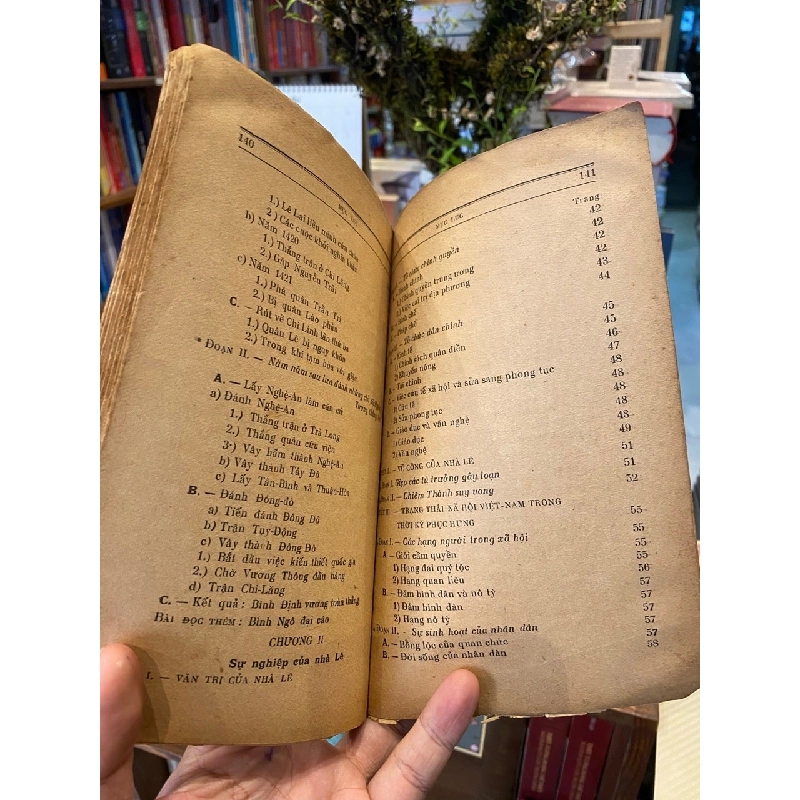 140
MỤC LỤC
1.) Lê Lai liều mình cứu chúa
2.) Các cuộc khởi nghĩa khác
b) Năm 1420
1.) Thắng trận ở Chi Lăng
2.) Gặp Nguyễn Trãi
c) Năm 1421
1.) Phá quân Trần Trí
2.) Bị quân Lào phản
C. — Rút về Chí Linh lần thứ ba
1.) Quân Lê bị nguy khốn
2.) Trong khi tạm hòa với giặc
ĐOẠN II. — Năm năm sau
A. — Lấy Nghệ-An làm căn cứ
a) Đánh Nghệ-An
1.) Thắng trận ở Trà Long
2.) Thắng quân cứu viện
3.) Vây hãm thành Nghệ-An
b) Vây thành Tây Đô
c) Lấy Tân-Bình và Thuận-Hóa
B. — Đánh Đông-đô
a) Tiến đánh Đông Đô
b) Trận Tụy-Động
c) Vây thành Đông Đô
1.) Bắt đầu việc kiến thiết quốc gia
2.) Chờ Vương Thông đầu hàng
d) Trận Chi-Lăng
C. — Kết quả : Bình Định vương toàn thắng
BÀI ĐỌC THÊM : Bình Ngô đại cáo
CHƯƠNG II
Sự nghiệp của nhà Lê
I. — VĂN TRỊ CỦA NHÀ LÊ
141
MỤC LỤC
Trang
42
Tổ chức chính quyền 42
chính 42
Chính quyền trung ương 43
Việc cai trị địa phương 44
chế
Pháp chế 45
Tổ chức dân chính 45
Kinh tế 46
1) Chính sách quân điền 47
2) Khuyến nông 48
Tài chính 48
Cứu tế xã hội và sửa sang phong tục 48
1) Cứu tế 48
2) Sửa phong tục 48
Giáo dục và văn nghệ 48
1) Giáo dục 49
2) Văn nghệ 51
VÕ CÔNG CỦA NHÀ LÊ 51
Dẹp các tù trưởng gây loạn 52
II. — Chiêm Thành suy vong
TRẠNG THÁI XÃ HỘI VIỆT-NAM TRONG
THỜI KỲ PHỤC HƯNG 55
ĐOẠN I. — Các hạng người trong xã hội 55
A — Giới cầm quyền 55
1) Hạng đại quý tộc 55
2) Hạng quan liêu 56
B. — Đám bình dân và nô tỳ 57
1) Đám bình dân 57
2) Hạng nô tỳ 57
ĐOẠN II. - Sự sinh hoạt của nhân dân 57
A. — Bổng lộc của quan chức 57
B. — Đời sống của nhân dân 58